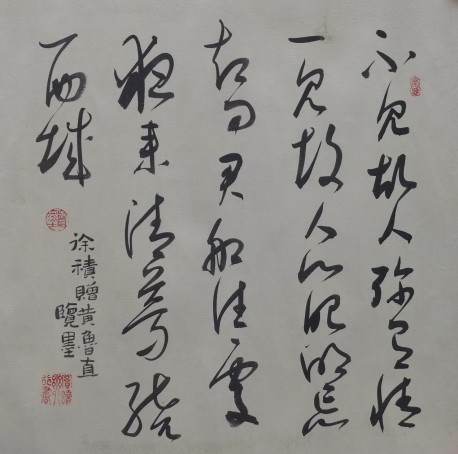 不見故人彌有情
一見故人心眼明忘
却問君船住處
夜來清夢繞
西城
徐積贈黄魯直
覽墨